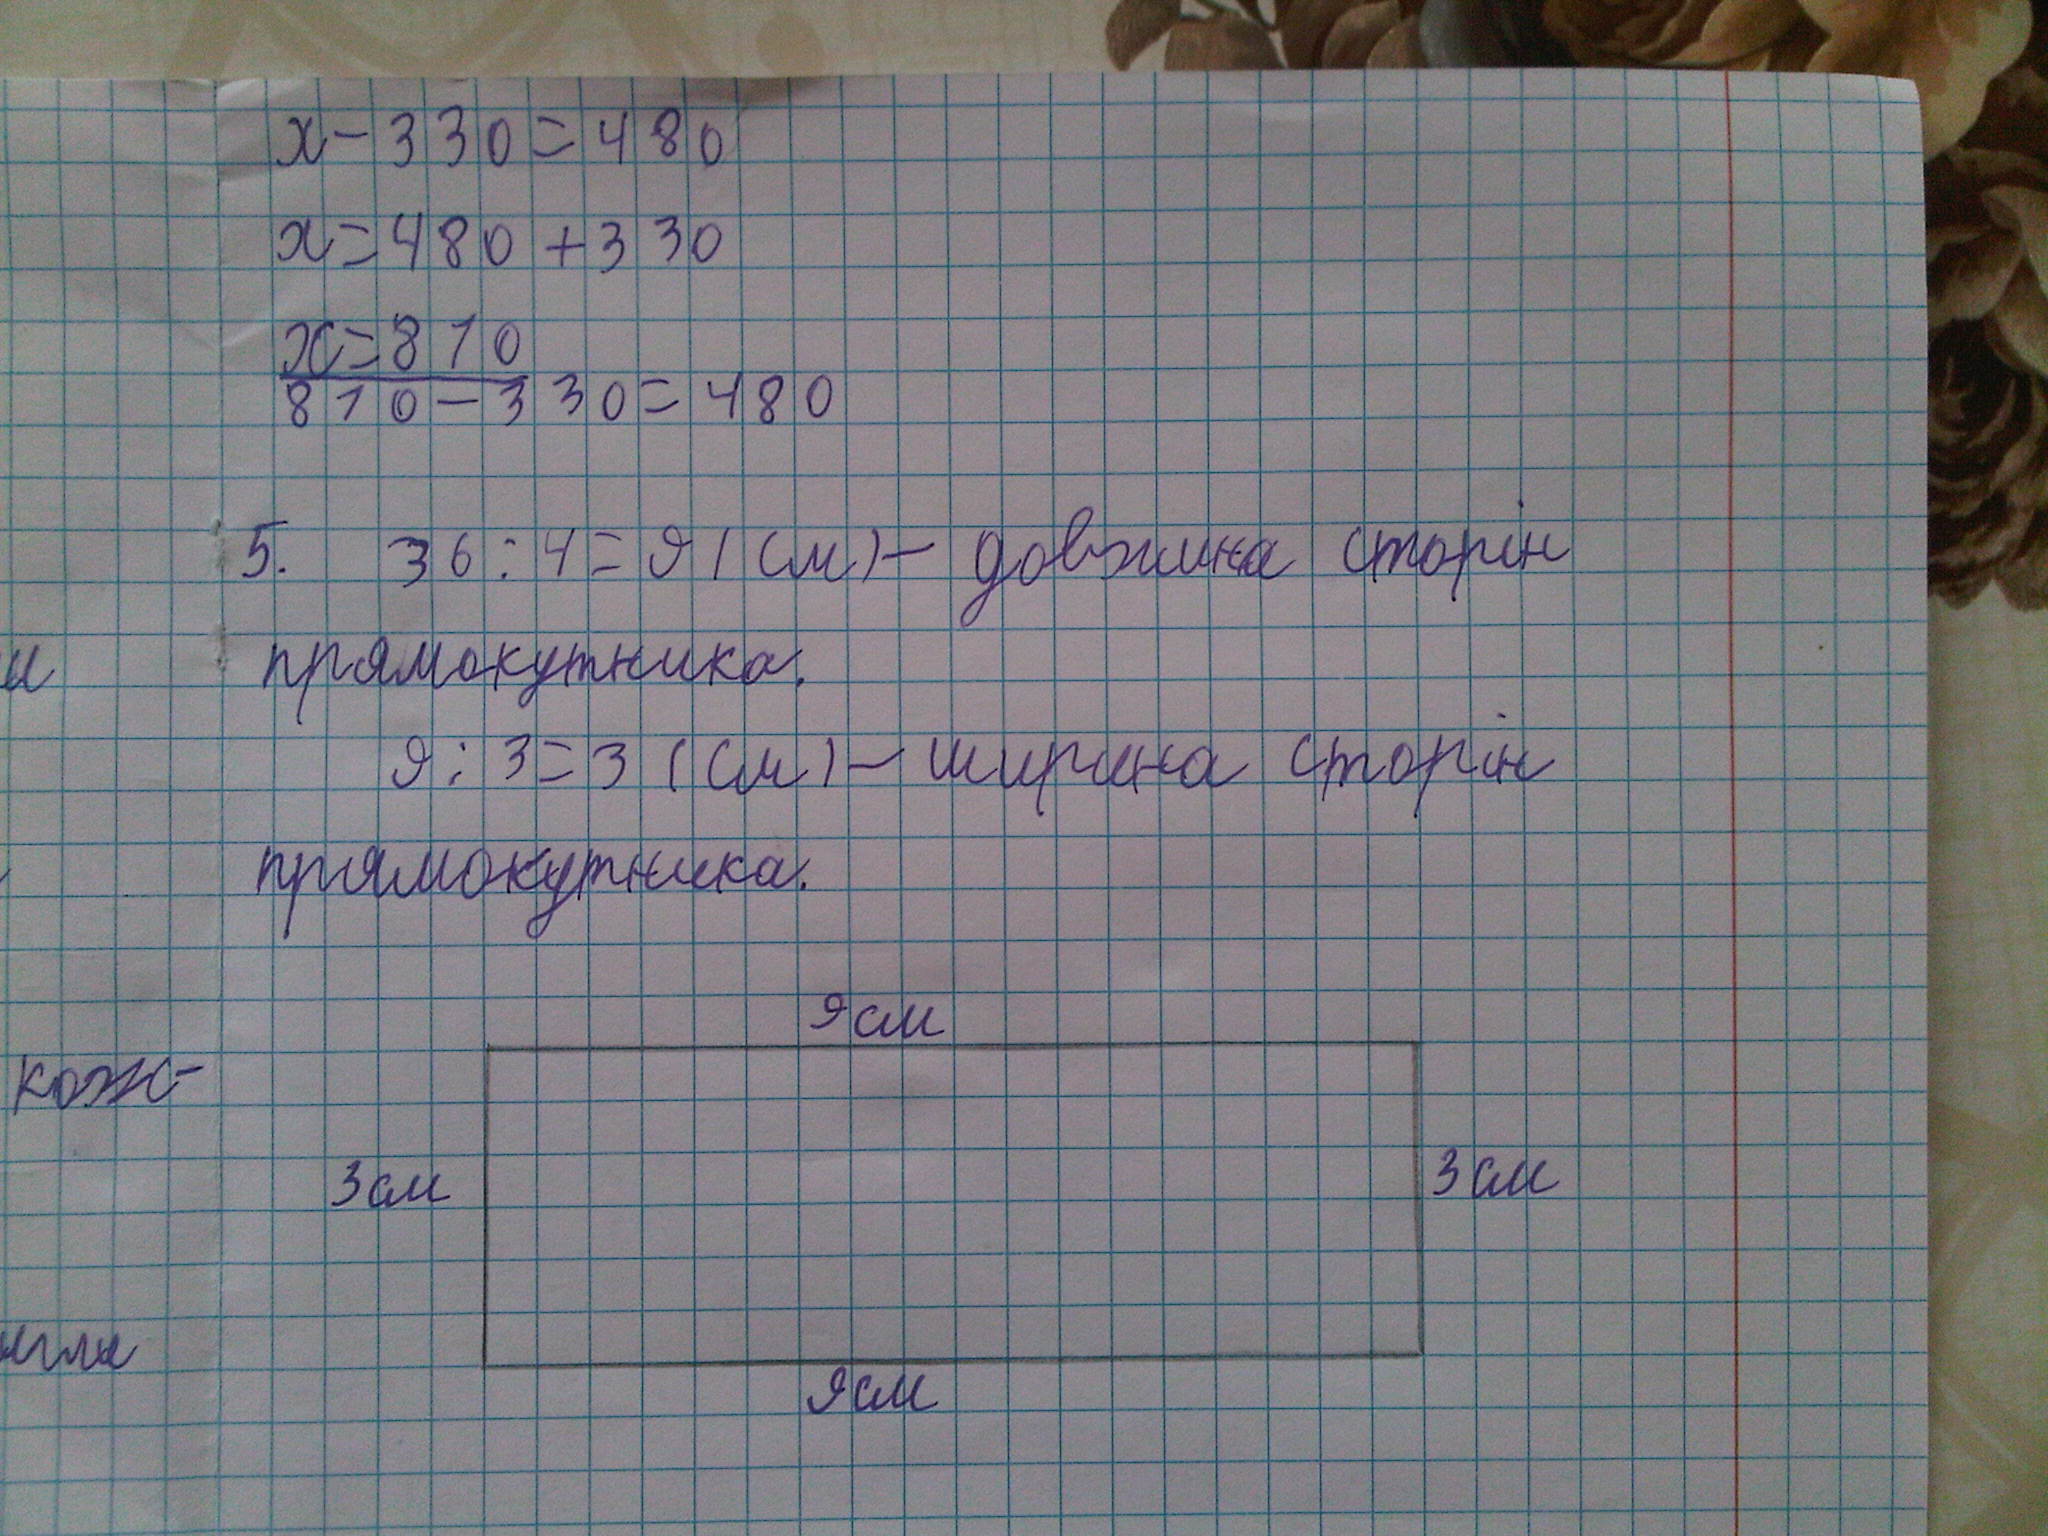 х-330=480
х=480+330
х=810
810-330=480
5. 36:4=9(см)- довжина сторін
прямокутника.
9:3=3(см)- ширина сторін
прямокутника.
9см
кож-
3см
3см
9см